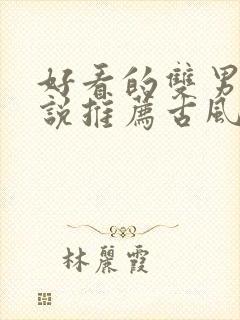 好看的雙男
說推薦古風
林麗霞